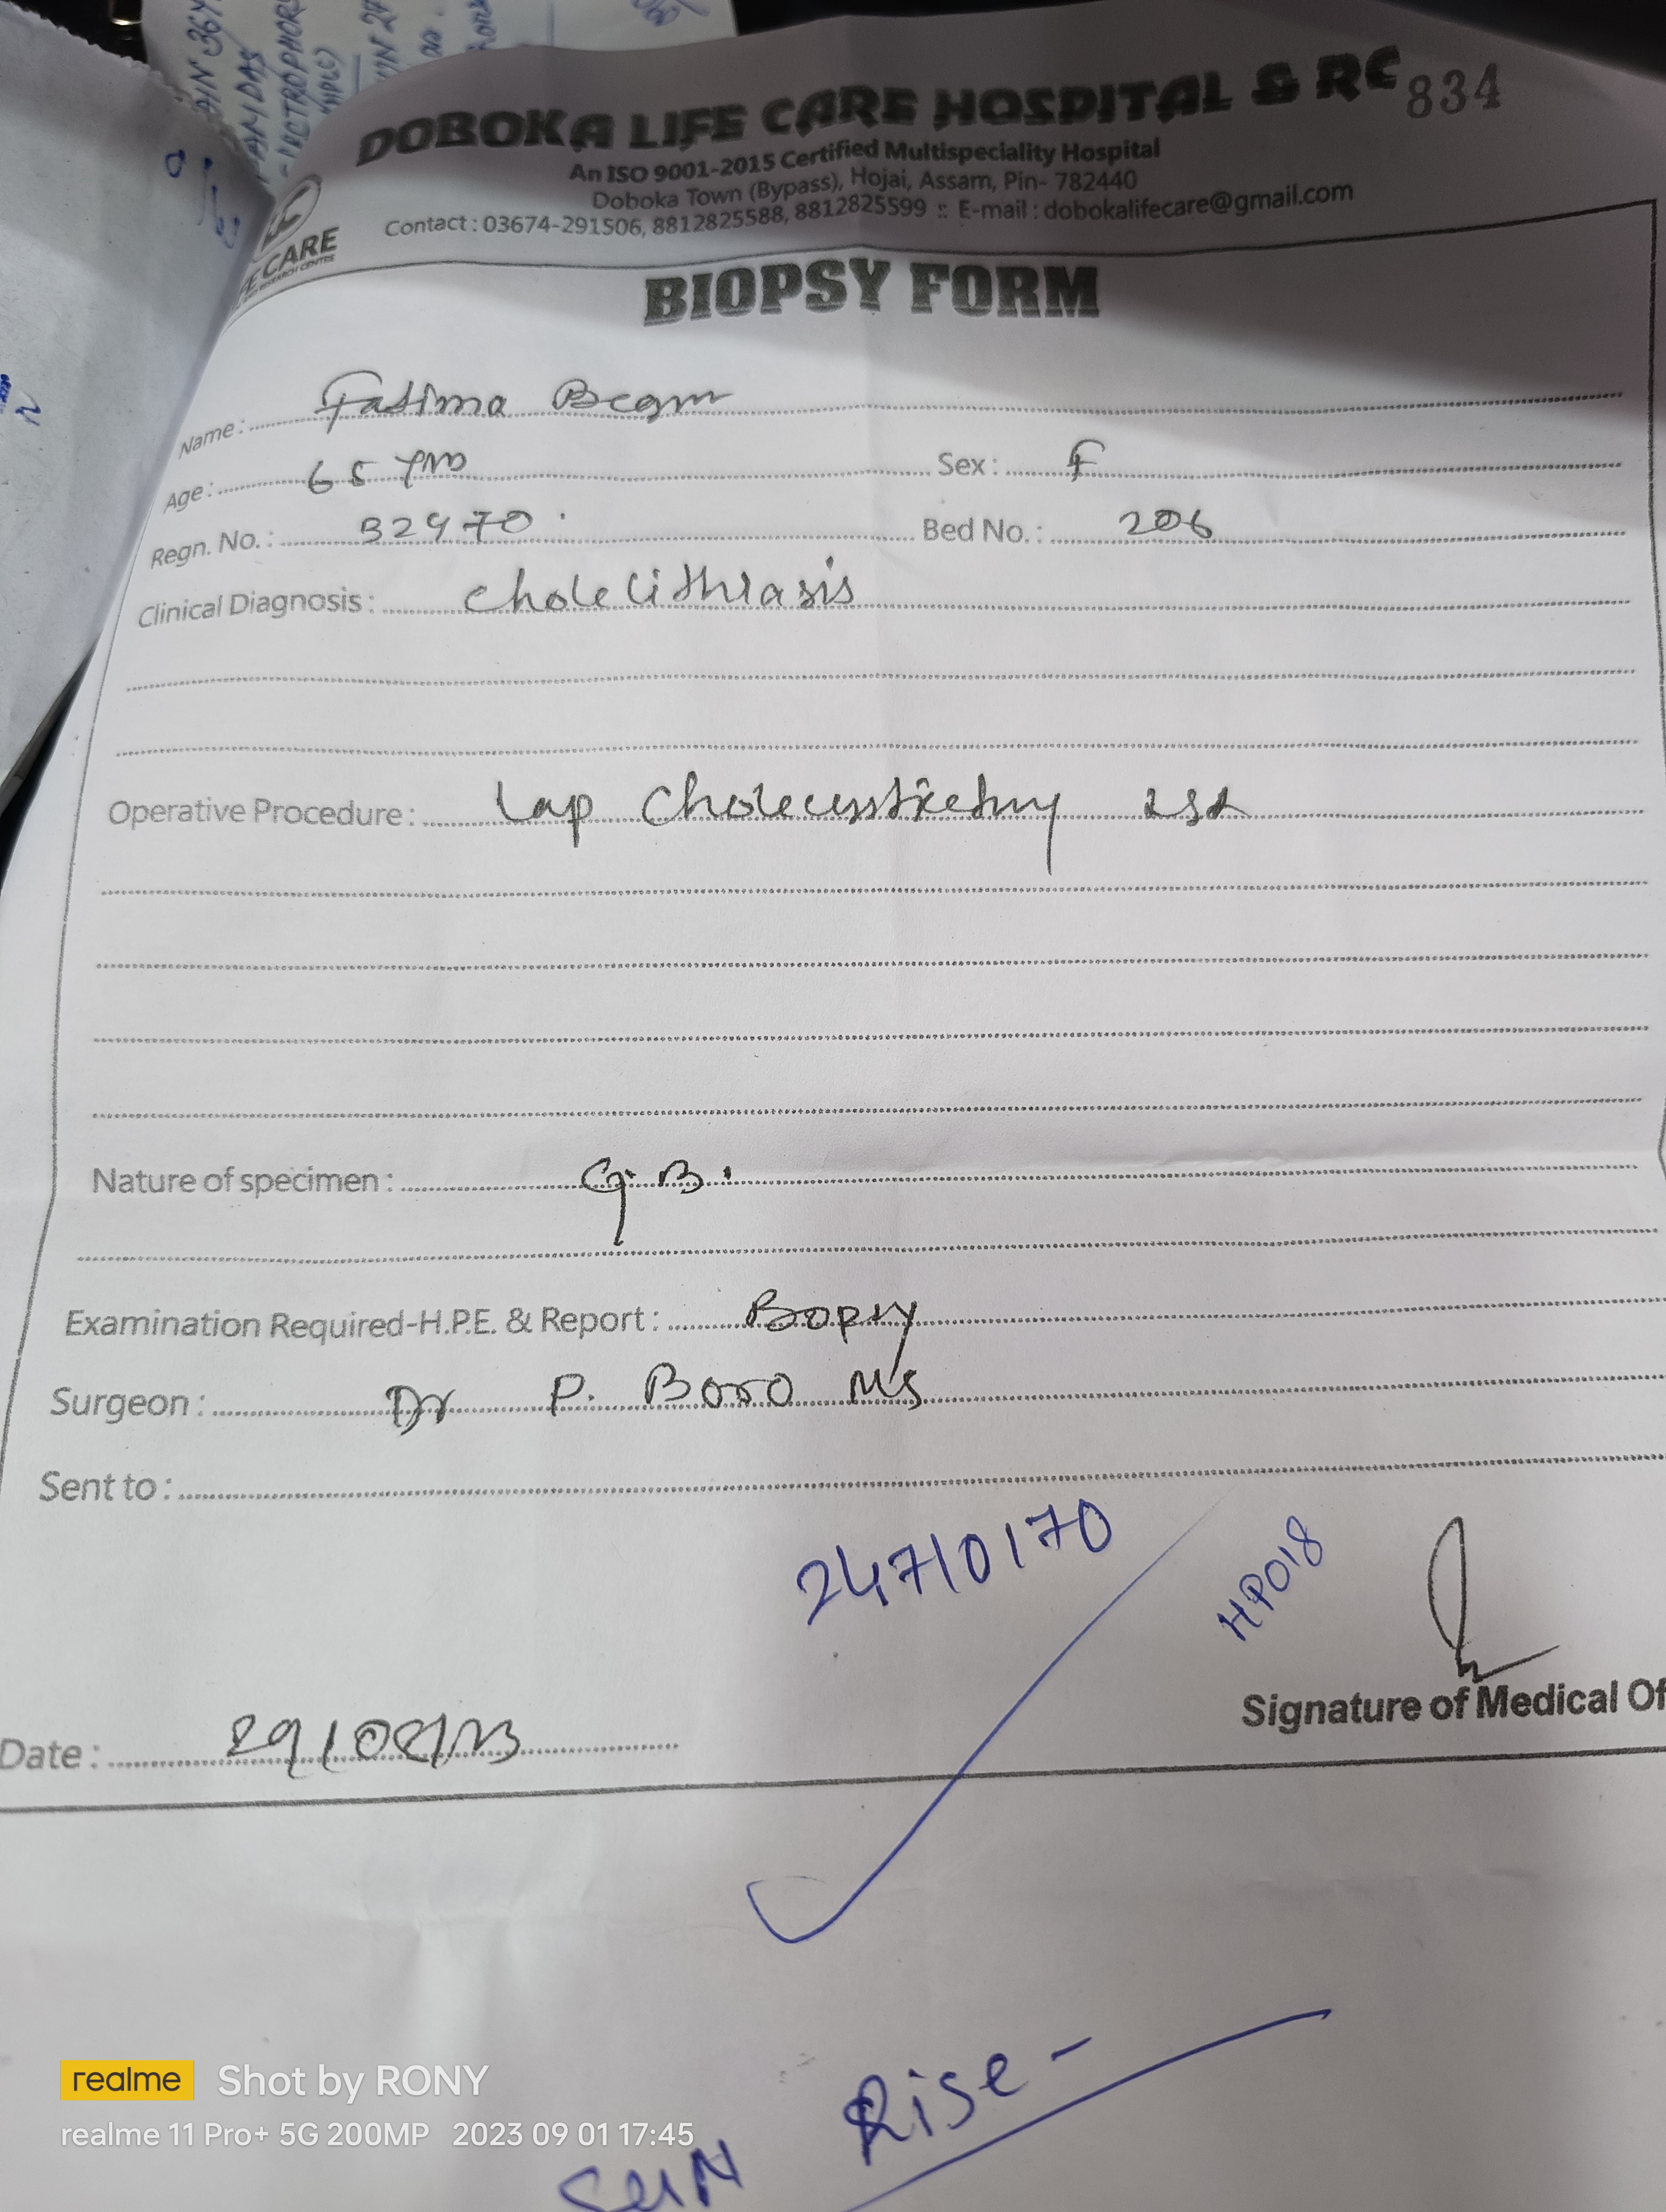 DOBOKA LIFE CARE HOSPITAL & RC 834
An ISO 9001-2015 Certified Multispeciality Hospital
Doboka Town (Bypass), Hojai, Assam, Pin- 782440
Contact : 03674-291506, 8812825588, 8812825599 :: E-mail : dobokalifecare@gmail.com
CARE
RESEARCH CENTRE
BIOPSY FORM
Name : Fatima Begm
Age : 65 yrs Sex : F
Regn. No. : 32470 Bed No. : 206
Clinical Diagnosis : Cholelithiasis
Operative Procedure : Lap Cholecystectmy
Nature of specimen : G.B.
Examination Required-H.P.E. & Report : Bopsy
Surgeon : Dr P. Boro MS
Sent to :
24710170
HP018
Signature of Medical Of
Date : 29/08/23
SUN Rise -
realme Shot by RONY
realme 11 Pro+ 5G 200MP 2023 09 01 17:45